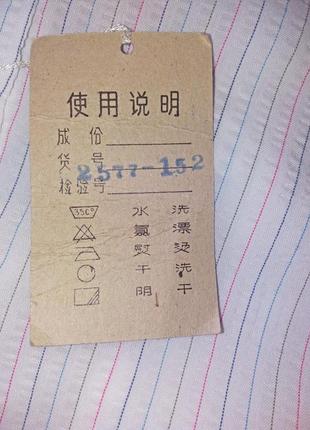 使用说明
成份
货号 2577-152
检验号
35C° 水洗
氯漂
熨烫
干洗
阴干